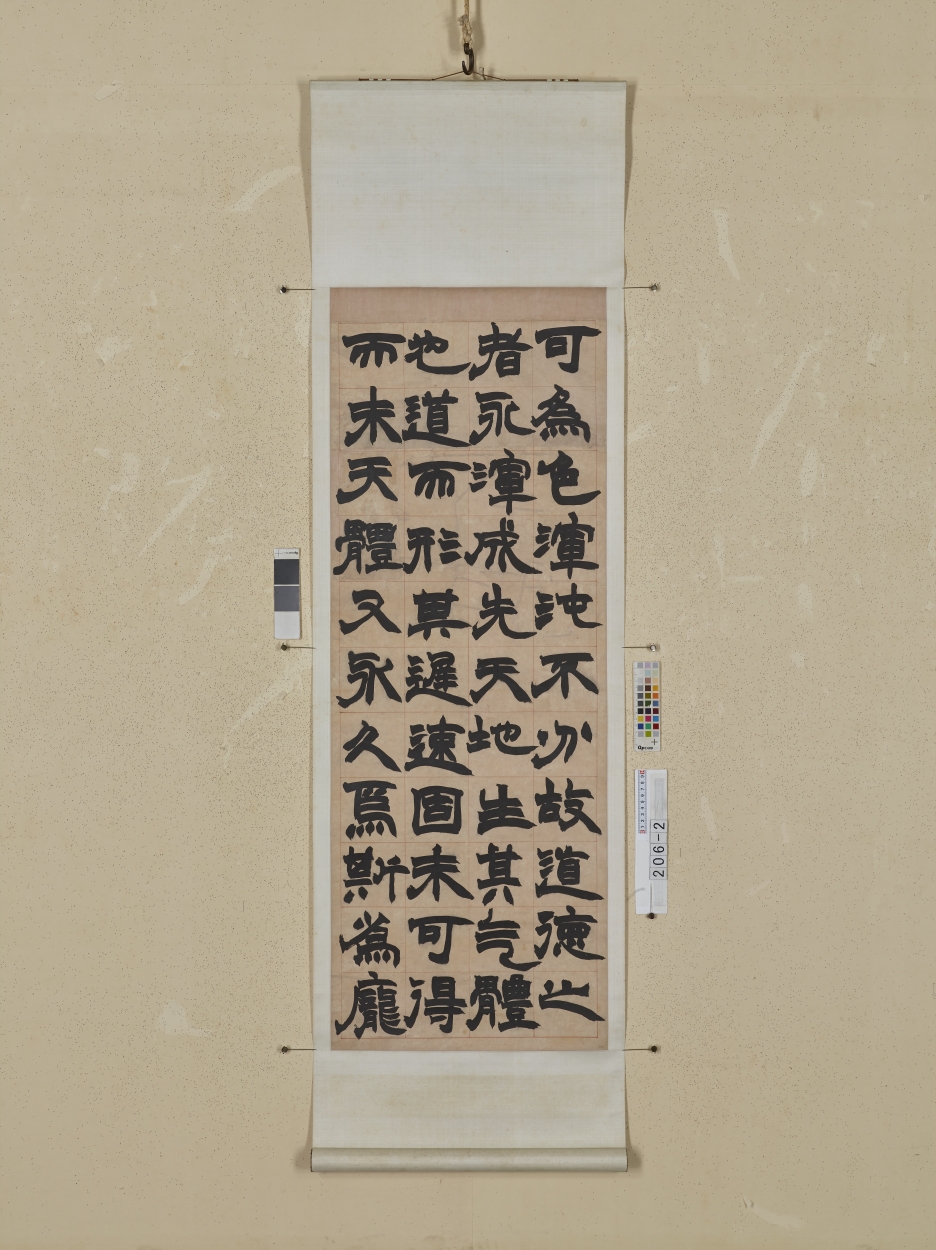 可為色渾沌不分故道德之
者永渾成先天地生其气體
也道而形其遲速固未可得
而末天體又永久焉斯為龐
206-2